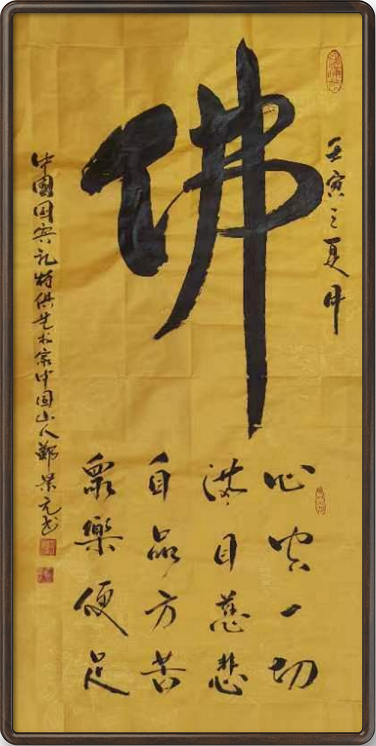 壬寅之夏月
佛
心容一切
满目慈悲
自品方苦
眾樂便足
中國国宾礼特供艺术家中国山人鄭景元书